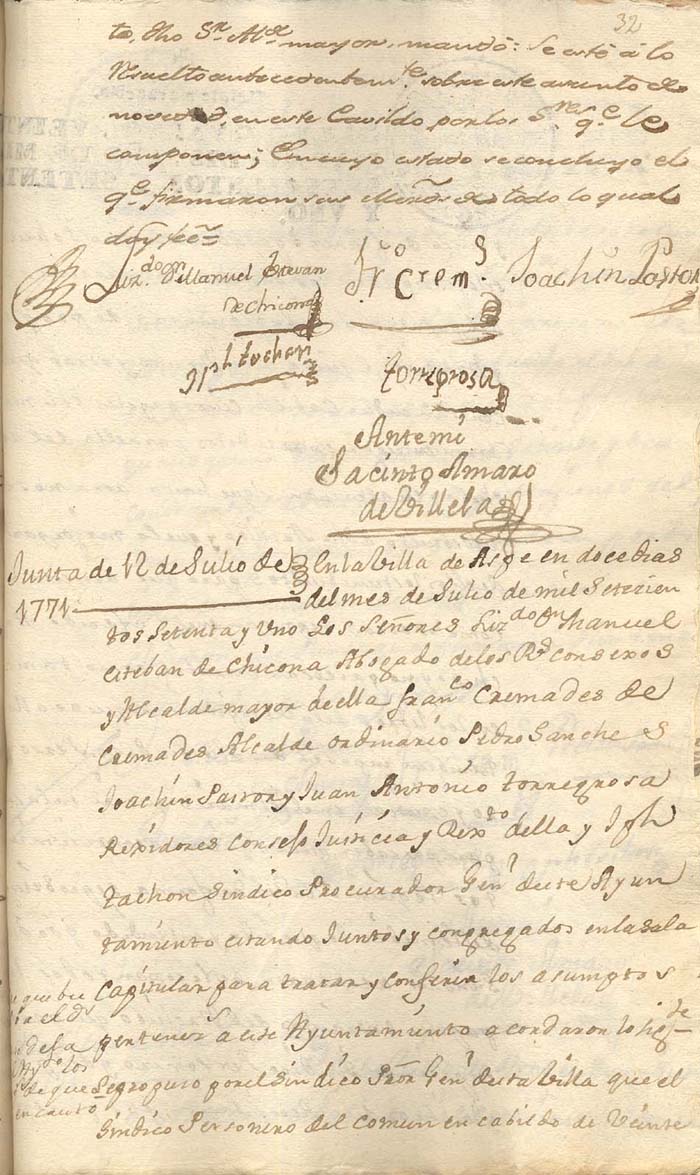 32
to, dho Sr. Alce. mayor, mandó: Se esté á lo
Resuelto antecedentemte. sobre este asunto de
en este Cavildo por los Sres. qe. le
componen; En cuyo estado se concluyo el
qe. firmaron sus Mrds. de todo lo qual
doy fee =
Lizdo. Dn. Manuel Estevan
de Chicona
Frco. Crems.
Joachin Pastor
Jph. tochon
torregrosa
Antemi
Jacinto Amaro
de Villela
Junta de 12 de Julio de
1771
En la Villa de Aspe en doce dias
del mes de Julio de mil Setezien
tos Setenta y Uno Los Señores Lizdo. Dn. Manuel
esteban de Chicona Abogado de los Rs. consexos
y Alcalde mayor de ella franco. Cremades de
Cremades Alcalde ordinario Pedro Sanches
Joachin Pastor y Juan Antonio torregrosa
Rexidores Consejo Justicia y Rexto. della y Jph
tachon Sindico Procurador Genl. deste Ayun
tamiento estando Juntos y congregados en la sala
Capitular para tratar y conferir los asumptos
pertenets. a este Ayuntamiento acordaron lo sigte.
que
de que
Se propuso por el Sindico Pror. Genl. desta Villa que el
Sindico Personero del Comun en cabildo de Veinte